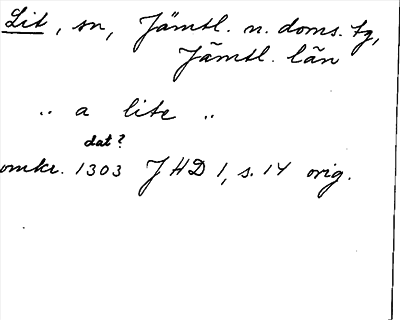 Lit, sn, Jämtl. n. doms. tg,
Jämtl. län
" a lite "
dat?
omkr. 1303 JHD 1, s. 14 orig.